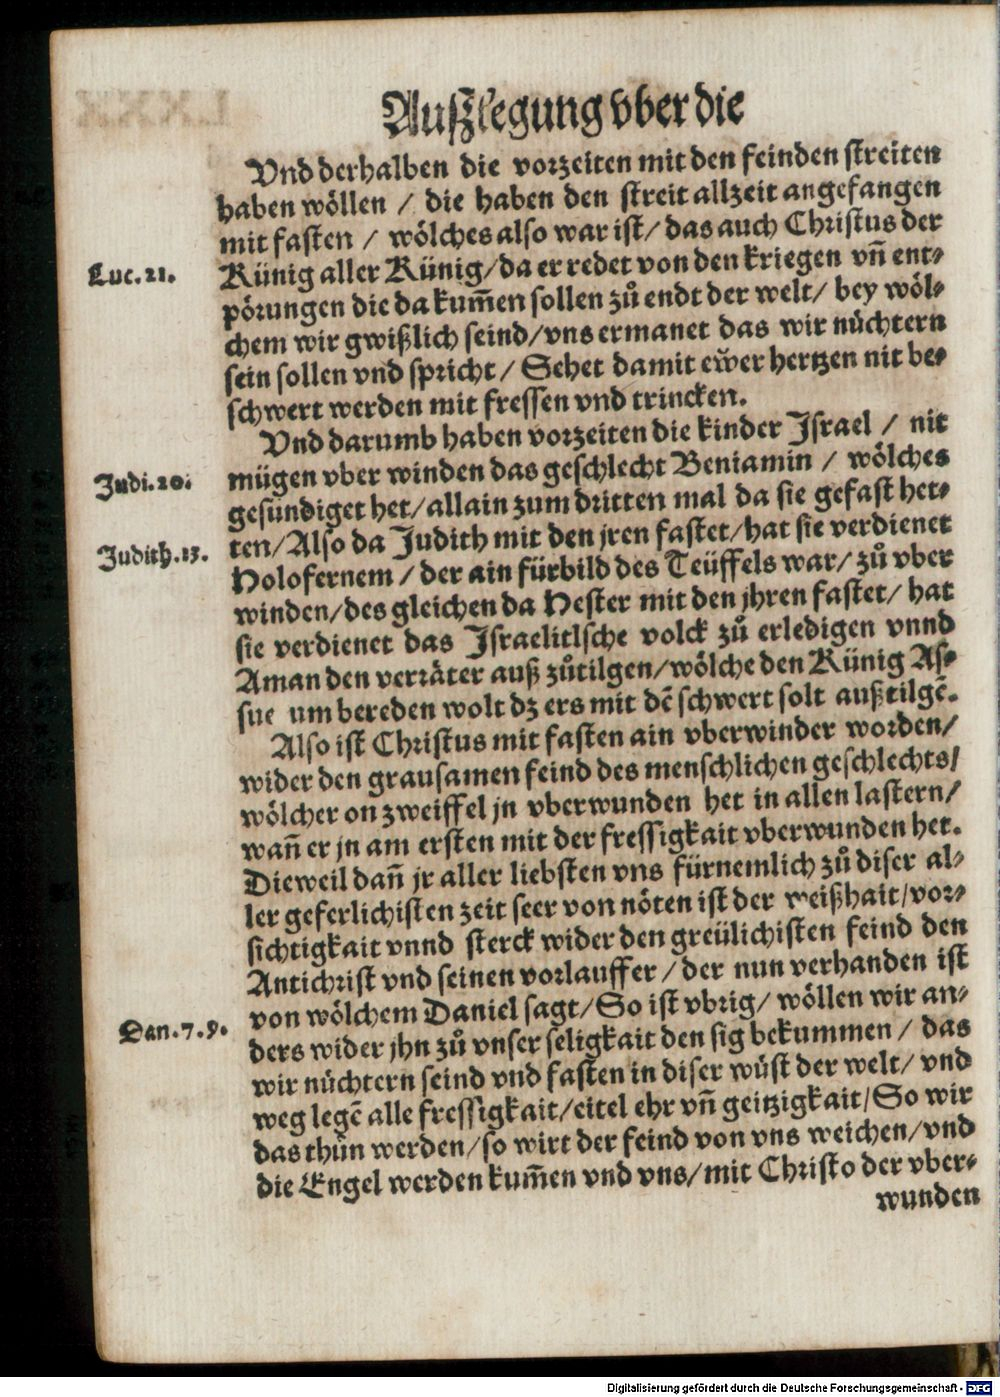 Außlegung vber die
Vnd derhalben die vorzeiten mit den feinden streiten
haben wöllen / die haben den streit allzeit angefangen
mit fasten / wölches also war ist / das auch Christus der
Luc. 21.
Künig aller Künig / da er redet von den kriegen vñ ent⸗
pörungen die da kum̃en sollen zů endt der welt / bey wöl⸗
chem wir gwißlich seind / vns ermanet das wir nüchtern
sein sollen vnd spricht / Sehet damit ew̌er hertzen nit be⸗
schwert werden mit fressen vnd trincken.
Vnd darumb haben vorzeiten die kinder Israel / nit
Judi. 20.
mügen vber winden das geschlecht Beniamin / wölches
gesündiget het / allain zum dritten mal da sie gefast het⸗
Judith. 13.
ten / Also da Judith mit den jren fastet / hat sie verdienet
Holofernem / der ain fürbild des Teüffels war / zů vber
winden / des gleichen da Hester mit den jhren fastet / hat
sie verdienet das Israelitlsche volck zů erledigen vnnd
Aman den verräter auß zůtilgen / wölche den Künig As⸗
sue um bereden wolt dz ers mit dẽ schwert solt außtilgẽ.
Also ist Christus mit fasten ain vberwinder worden /
wider den grausamen feind des menschlichen geschlechts /
wölcher on zweiffel jn vberwunden het in allen lastern /
wañ er jn am ersten mit der fressigkait vberwunden het.
Dieweil dañ jr aller liebsten vns fürnemlich zů diser al⸗
ler geferlichisten zeit seer von nöten ist der weißhait / vor⸗
sichtigkait vnnd sterck wider den greülichisten feind den
Antichrist vnd seinen vorlauffer / der nun verhanden ist
von wölchem Daniel sagt / So ist vbrig / wöllen wir an⸗
Dan. 7. 9.
ders wider jhn zů vnser seligkait den sig bekummen / das
wir nüchtern seind vnd fasten in diser wüst der welt / vnd
weg legẽ alle fressigkait / eitel ehr vñ geitzigkait / So wir
das thůn werden / so wirt der feind von vns weichen / vnd
die Engel werden kum̃en vnd vns / mit Christo der vber⸗
wunden
Digitalisierung gefördert durch die Deutsche Forschungsgemeinschaft - DFG